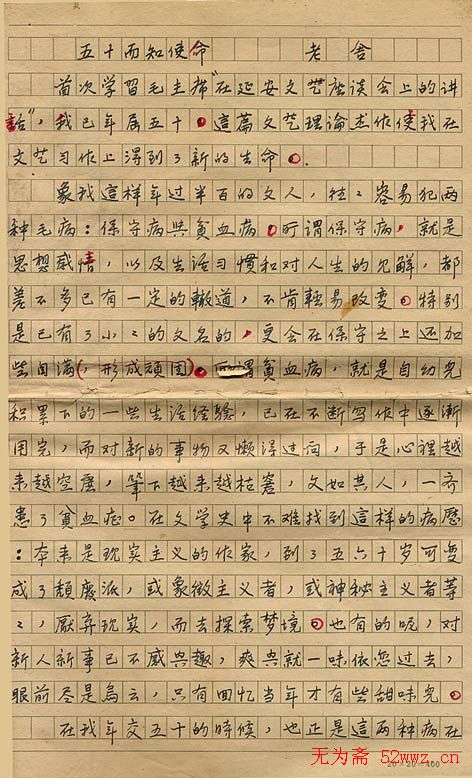 五十而知使命　　老舍
首次学習毛主席"在延安文艺座谈会上的讲
話"，我已年届五十。這篇文艺理論杰作使我在
文艺习作上得到了新的生命。
象我這样年过半百的文人，往々容易犯两
种毛病：保守病與貧血病。所谓保守病，就是
思想感情，以及生活习惯和对人生的見解，都
差不多已有一定的轍道，不肯輕易改变。特别
是已有了小々的文名的，更会在保守之上还加
些自满(，形成頑固)。所謂貧血病，就是自幼兒
积累下的一些生活经驗，已在不断写作中逐漸
用完，而对新的事物又懒得过问，于是心裡越
来越空虛，筆下越来越枯窘，文如其人，一齐
患了貧血症。在文学史中不难找到這样的病歷
：本来是现实主义的作家，到了五六十岁可变
成了頹廢派，或象徵主义者，或神秘主义者等
々，厭弃现实，而去探索梦境。也有的呢，对
新人新事已不感兴趣，爽兴就一味依恋过去，
眼前尽是烏云，只有回忆当年才有些甜味兒。
在我年交五十的時候，也正是這两种病在
20×20=400
无为斋 52wwz.cn